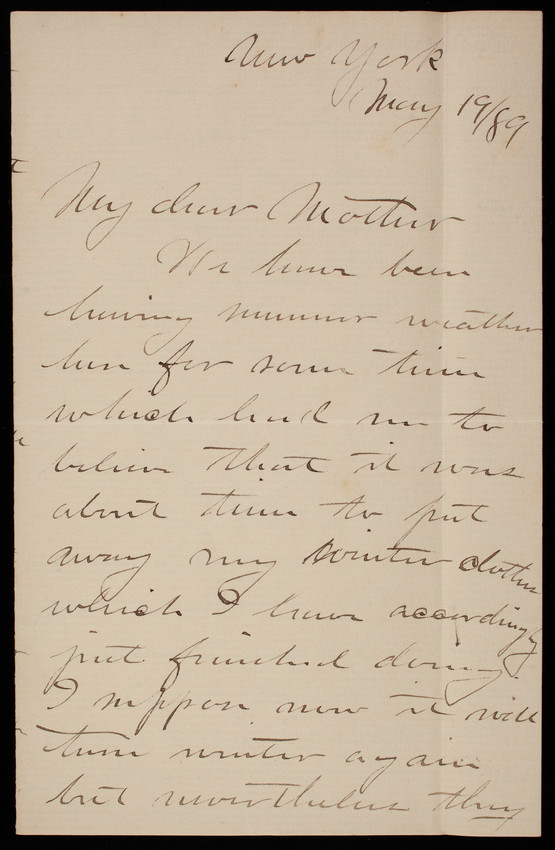 New York
May 19/89
My dear Mother
We have been
having summer weather
here for some time
which lead me to
believe that it was
about time to put
away my winter clothes
which I have accordingly
just finished doing.
I suppose now it will
turn winter again
but nevertheless they